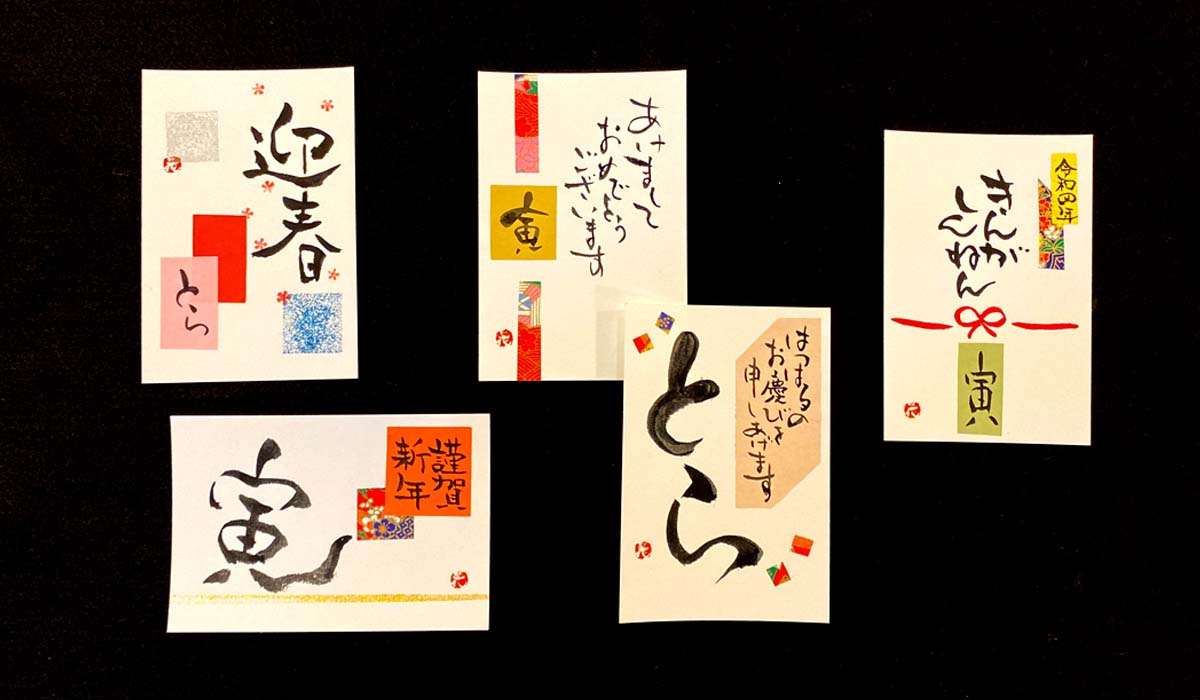 迎春
とら
あけまして
おめでとう
ございます
寅
令和四年
きんが
しんねん
寅
謹賀
新年
寅
はつはるの
お慶びを
申しあげます
とら